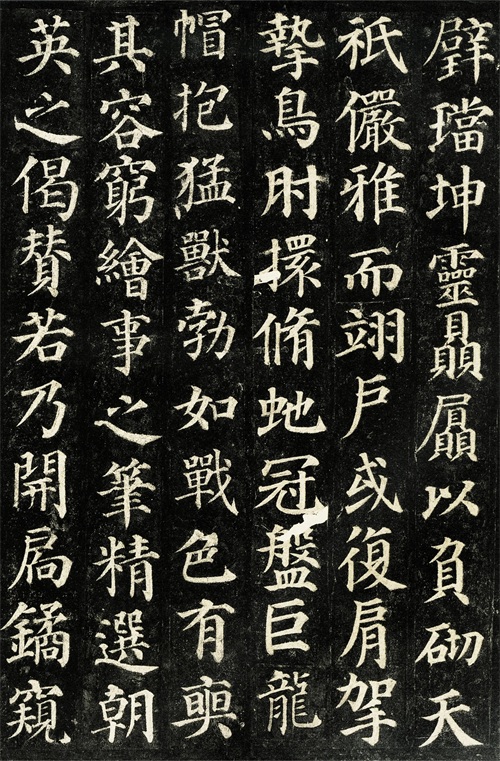 壁璫坤靈贔屭以負砌天
祇儼雅而翊戶或復肩挐
摯鳥肘擐脩虵冠盤巨龍
帽抱猛獸勃如戰色有奭
其容窮繪事之筆精選朝
英之偈賛若乃開扃鐍窺